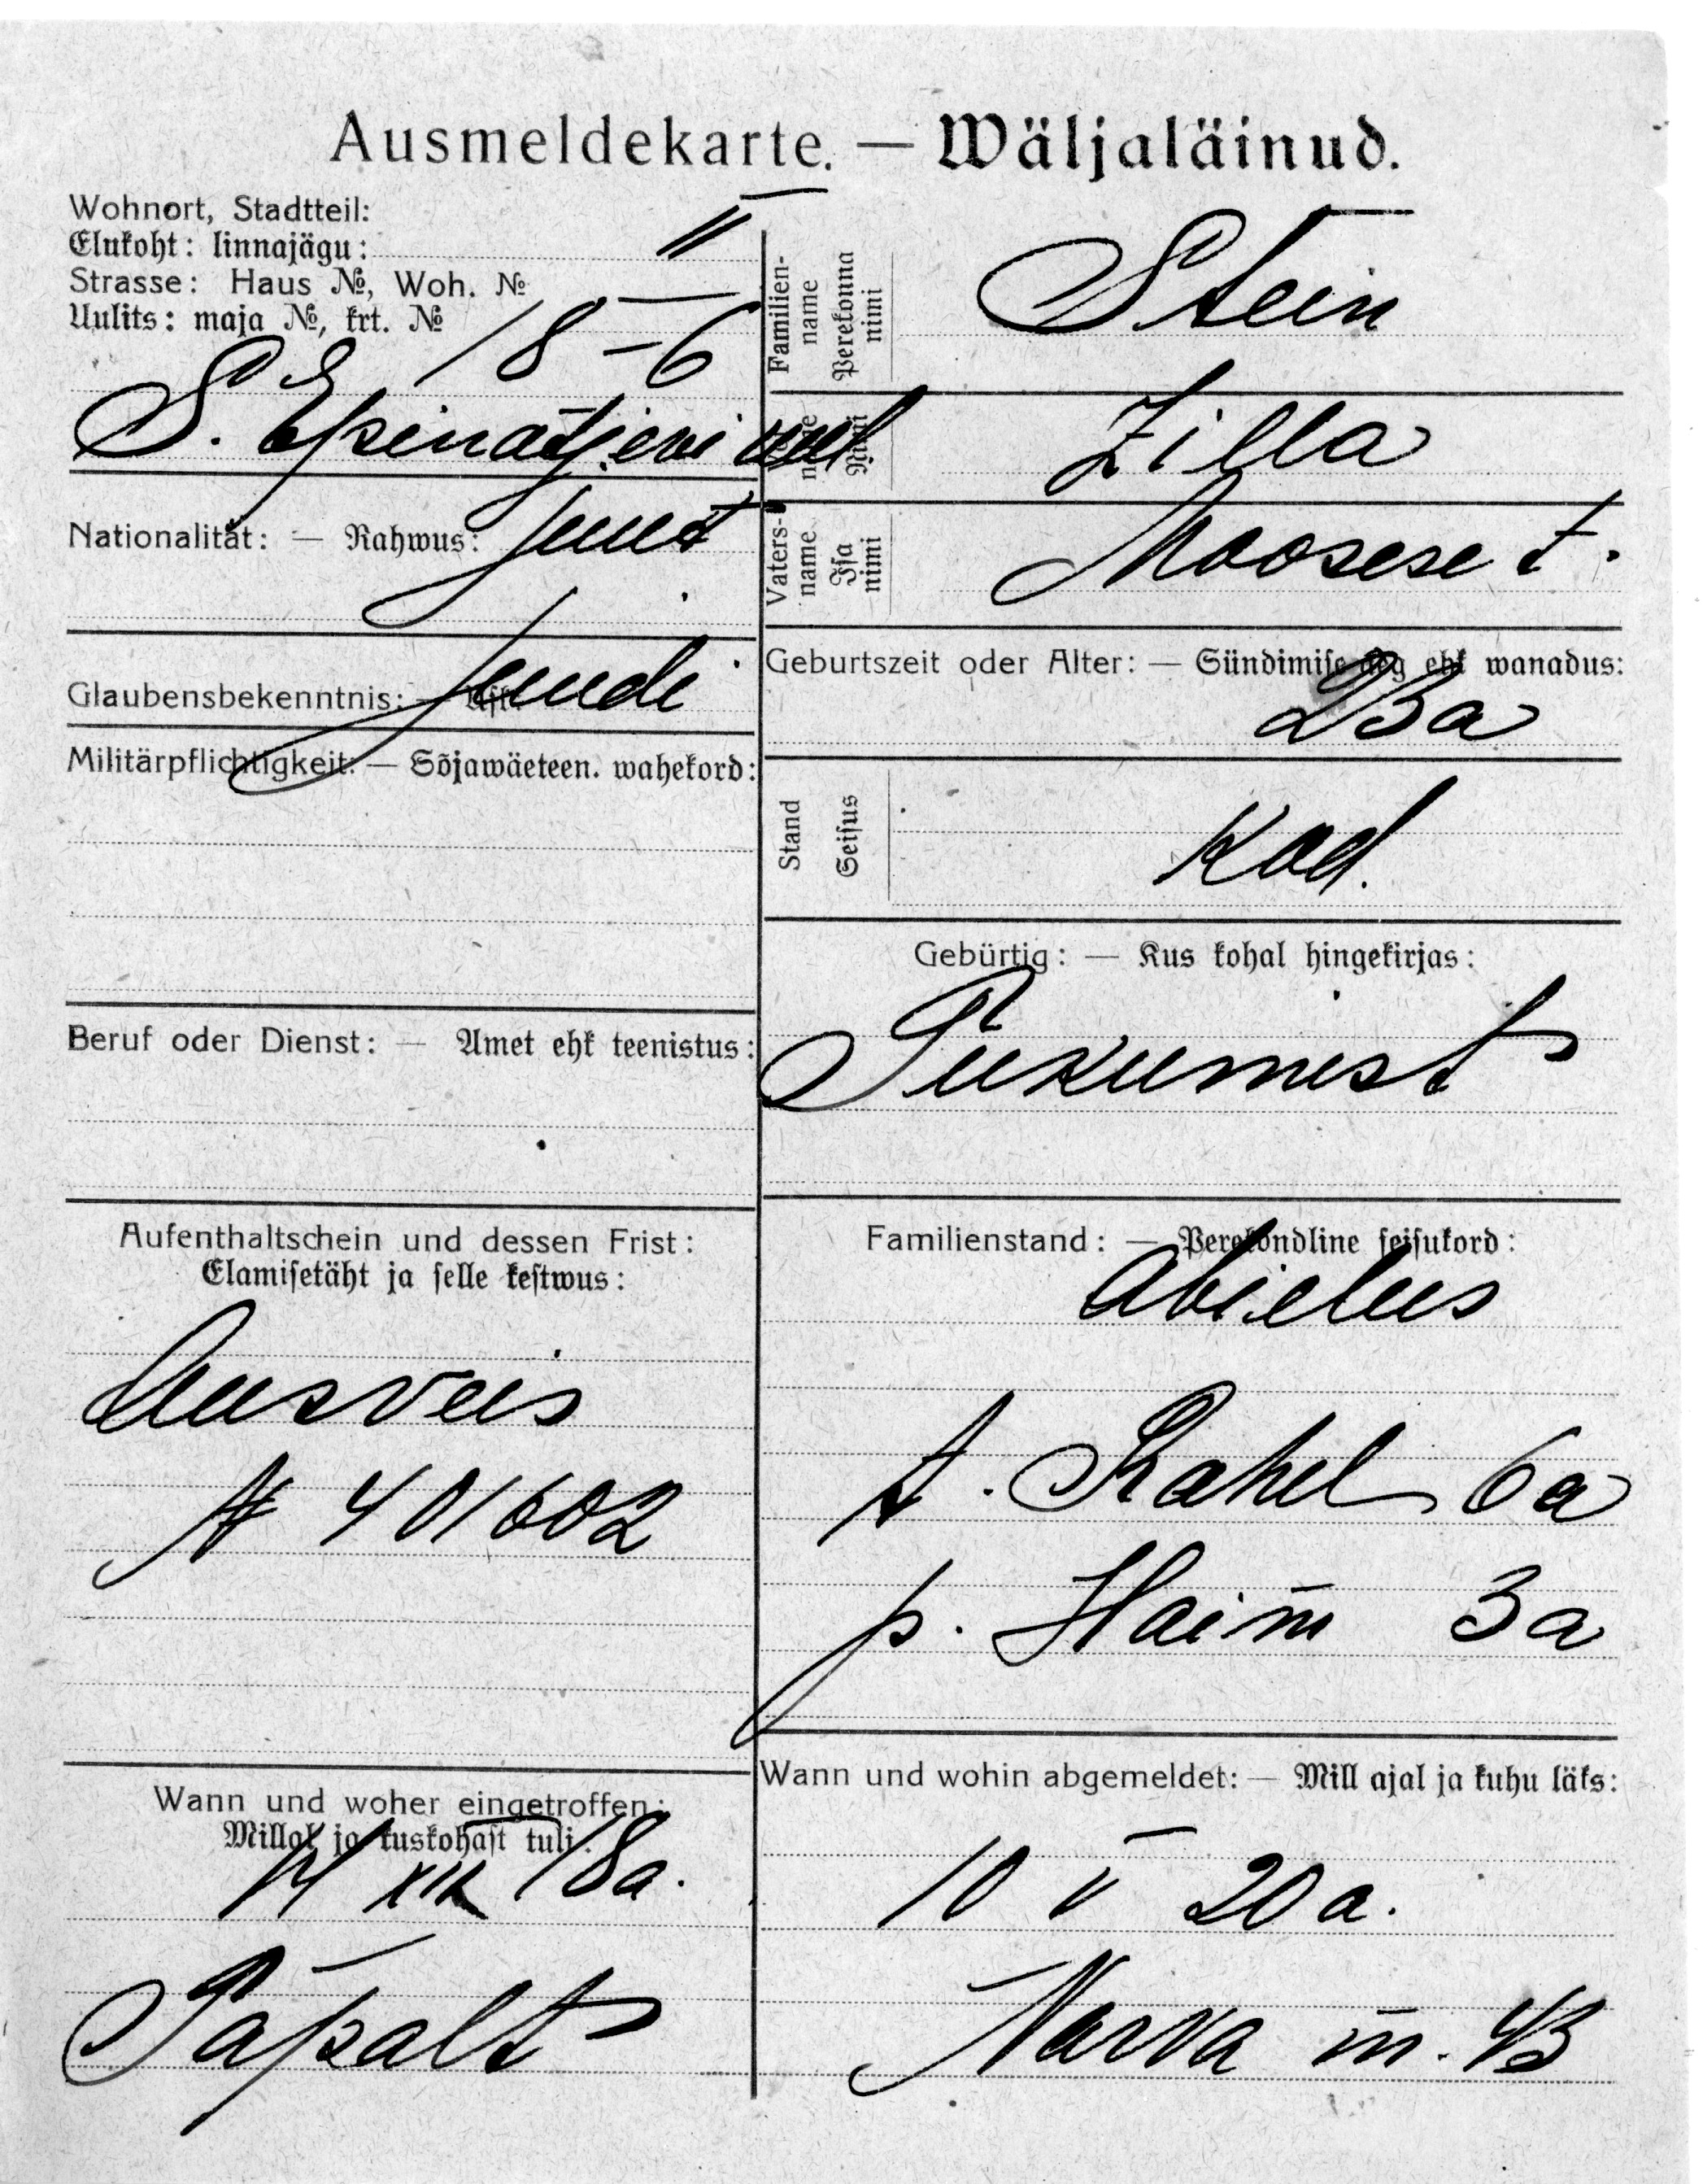 Ausmeldekarte. — Wäljaläinud.
Wohnort, Stadtteil:
Elukoht: linnajägu: II
Strasse: Haus №, Woh. №
Uulits: maja №, krt. №
18-6
S.
Nationalität: — Rahwus: Juut
Glaubensbekenntnis: — Usk: Juudi
Militärpflichtigkeit: — Sõjawäeteen. wahekord:
Beruf oder Dienst: — Amet ehk teenistus:
Aufenthaltschein und dessen Frist:
Elamisetäht ja selle kestwus:
Ausveis
N 401602
Wann und woher eingetroffen:
Millal ja kuskohast tuli:
14 XII 18 a.
Tapalt
Familien-
name
Perekonna
nimi
Stein
name
Nimi
Zilla
Vaters-
name
Isa
nimi
Moosese t.
Geburtszeit oder Alter: — Sündimise aeg ehk wanadus:
23 a
Stand
Seisus
Kod.
Gebürtig: — Kus kohal hingekirjas:
Tukumist
Familienstand: — Perekondline seisukord:
Abielus
t. Rahel 6 a
p. Haim 3 a
Wann und wohin abgemeldet: — Mill ajal ja kuhu läks:
10 V 20 a.
Narva m. 43